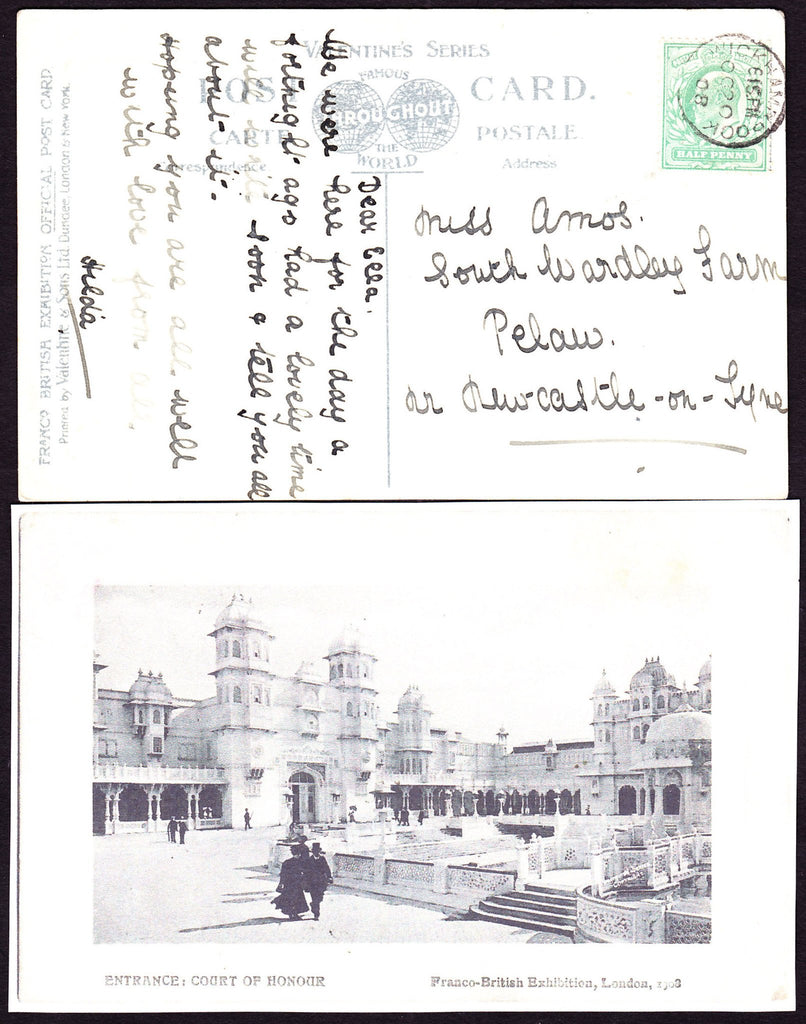 VALENTINE'S SERIES
POST CARD.
FAMOUS
THROUGHOUT
THE WORLD
CARTE POSTALE
Correspondence
Address
HALF PENNY
FRANCO BRITISH EXHIBITION OFFICIAL POST CARD
Printed by Valentine & Sons Ltd. Dundee, London & New York.
Dear Ella.
We were here for the day a
fortnight ago had a lovely time
will write soon & tell you all
about it.
Hoping you are all well
with love from all.
Hilda
Miss Amos.
South Wardley Farm
Pelaw.
nr Newcastle-on-Tyne
ENTRANCE: COURT OF HONOUR
Franco-British Exhibition, London, 1908